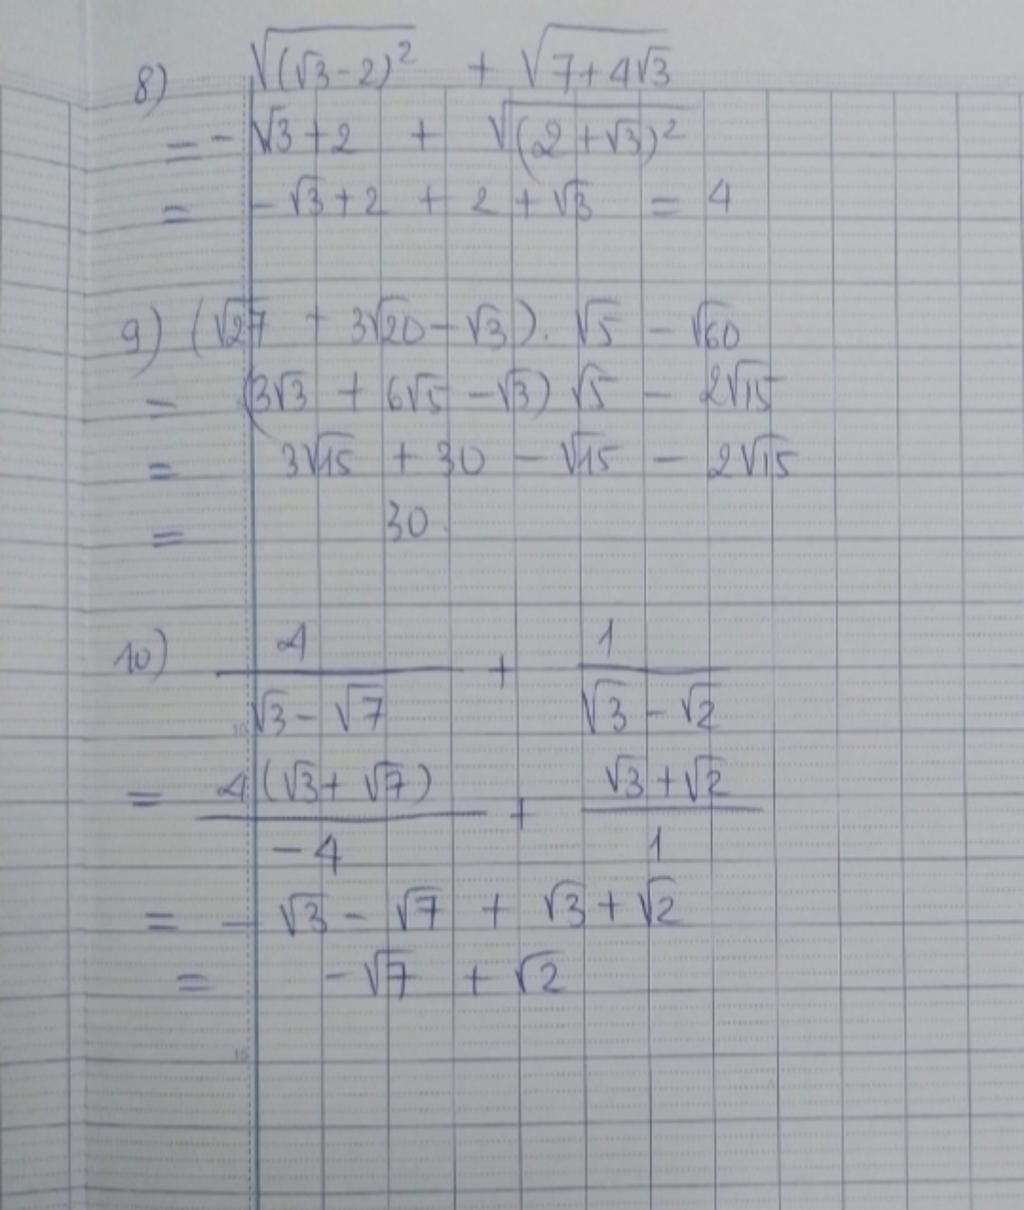 8) √((√3-2)²) + √(7+4√3)
= -√3+2 + √((2+√3)²)
= -√3+2 + 2+√3 = 4
9) (√27 + 3√20-√3). √5 - √60
= (3√3 + 6√5 -√3) √5 - 2√15
= 3√15 + 30 - √15 - 2√15
= 30
10) 4/(√3-√7) + 1/(√3-√2)
= 4(√3+√7)/-4 + (√3+√2)/1
= -√3 - √7 + √3+√2
= -√7 + √2